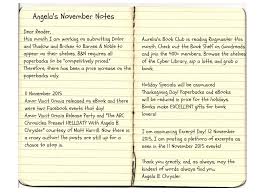 Angela's November Notes
Dear Reader,
This month I am working on submitting Dolor
and Shadow and Broken to Barnes & Noble to
appear on their shelves. B&N requires all
paperback prices to be "competitively priced."
Therefore, there has been a price increase on the
paperbacks only.
11 November 2015
Amor Vacui Omnus released on eBook and there
were two Facebook events that day!
Amor Vacui Omnus Release Party and The ABC
Chronicles Present HELLDAY!! With Angela B
Chrysler" courtesy of Matt Harrill. Now there is
a rotary author! The posts are still up for a
chance to stop in.
Aurelia's Book Club is reading Ragmaster this
month. Check out the Book Shelf on Goodreads
and join the 400+ members there. Browse the
shelves of the Cyber Library, sip a latte, and grab
a book.
Holiday Specials will be announced
Thanksgiving Day! Paperbacks and eBooks
will be reduced in price for the holidays.
Books make EXCELLENT gifts for book
lovers!
I am announcing Excerpt Day! 12 November
2015, I am posting a plethora of excerpts as
news is the 11 November 2015 event!
Thank you greatly, and, as always, may the
kindest words always find you.
Angela B Chrysler